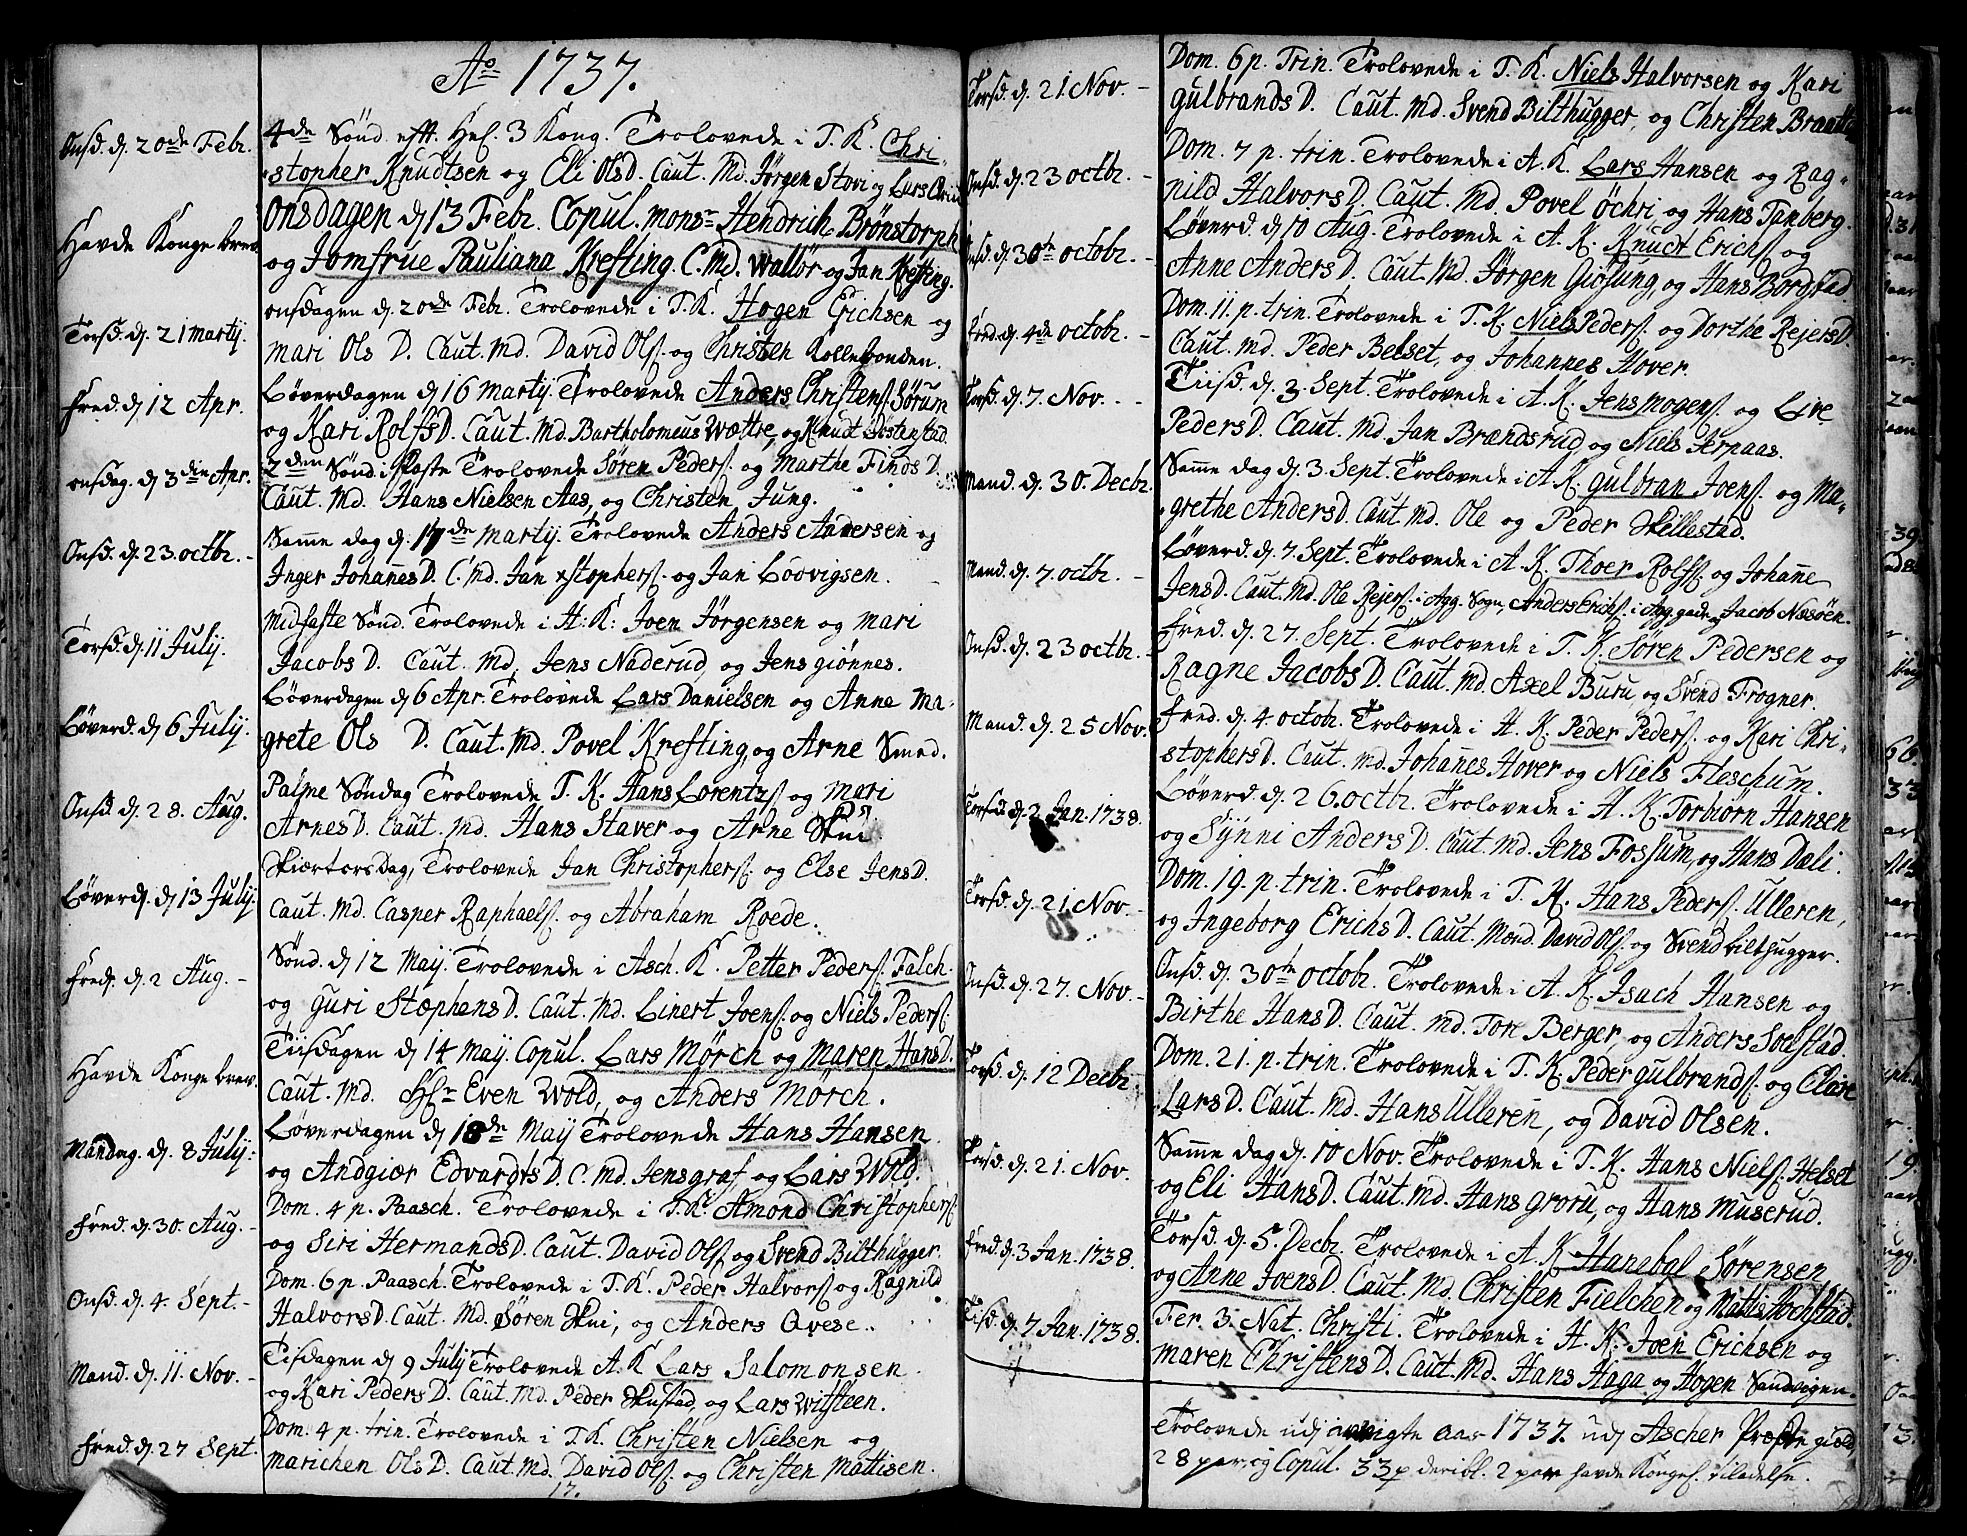 Ao 1737.
Onsd. d. 20de Febr.
4de Sønd. efft. Hel. 3 Kong. Trolovede i T. K. Chri-
stopher Knudtsen og Eli OlsD. Caut. Md. Jørgen Stovi og Lars
Havde Konge brev
Onsdagen d 13 Febr. Copul. Monsr Hendrich Brönstorph
og Jomfrue Pauliana Krefting. C. Md. Wallör og Jan Krefting.
Torsd. d. 21 Martij.
Onsdagen d. 20de Febr. Trolovede i T. K. Hogen Erichsen og
Mari Ols D. Caut. Md. David Ols. og Christen Kollebonden.
Fred. d 12 Apr.
Løverdagen d 16 Martij Trolovede Anders Christens. Sørum
og Kari RolfsD. Caut. Md. Bartholomeus Wættre, og Knudt Tostenstad.
Onsdag. d 3die Apr.
2den Sønd. i Faste Trolovede Søren Peders. og Marthe FindsD.
Caut. Md. Hans Nielsen Aas, og Christen Jung.
Onsd. d. 23. octbr. -
Samme dag d. 17de Martij Trolovede Anders Andersen og
Inger JohannesD. C. Md. Jan Xstophers. og Jan Lødvigsen.
Torsd. d. 11 July.
Midfaste Sønd. Trolovede i H: K: Joen Jørgensen og Mari
JacobsD. Caut. Md. Jens Naderud, og Jens giønnes.
Løverd. d 6 July.
Løverdagen d 6 Apr. Trolovede Lars Danielsen og Anne Ma-
grete Ols D. Caut. Md. Povel Krefting, og Arne Smed.
Onsd. d. 28. Aug.
Palme Søndag Trolovede T. K. Hans Lorentz. og Mari
ArnesD. Caut. Md. Hans Staver og Arne Skui
Løverd. d 13 July.
Skiertorsdag, Trolovede Jan Christophers. og Else JensD.
Caut. Md. Casper Raphaels. og Abraham Roede.
Fred. d. 2 Aug. -
Sønd. d 12 May. Trolovede i Asch. K. Petter Peders. Falch.
og Guri StephensD. Caut. Md. Linert Joens. og Niels Peders.
Havde Konge brev.
Tiisdagen d 14 May. Copul. Lars Mörch og Maren HansD.
Caut. Md. Hr Even Wold, og Anders Mörch.
Mandag. d. 8 July.
Løverdagen d 18de May Trolovede Hans Hansen
og Andgiær EdvardtsD. C. Md. Jens graf og Lars Wold.
Fred. d. 30. Aug. -
Dom. 4 p. Paasch. Trolovede i T. K. Amond Christophers.
og Siri HermandsD. Caut. David Ols. og Svend Bilthugger.
Onsd. d. 4. Sept. -
Dom. 6 p. Paasch. Trolovede i T. K. Peder Halvors. og Ragnild
HalvorsD. Caut. Md. Søren Skui, og Anders Qvese.
Mand. d. 11. Nov. -
Tisdagen d 9 July Trolovede A. K Lars Salomonsen
og Kari PedersD. Caut. Md. Peder Skustad, og Lars Witsteen.
Fred. d. 27 Sept.
Dom. 4 p. trin. Trolovede i T. K. Christen Nielsen og
Marichen OlsD. Caut. Md. David Ols. og Christen Mattisen.
Torsd. d. 21. Nov. -
Dom. 6 p. Trin. Trolovede i T. K. Niels Halvorsen og Kari
GulbrandsD. Caut. Md. Svend Bilthugger, og Christen Braatte
Onsd. d. 23 octbr. -
Dom. 7 p. trin. Trolovede i A. K Lars Hansen og Rag-
nild HalvorsD. Caut. Md. Povel Öchri, og Hans Tanberg.
Onsd. d. 30te octobr. -
Løverd. d 10 Aug. Trolovede i A. K. Knudt Erichs. og
Anne AndersD. Caut. Md. Jörgen Giösung, og Hans Borgstad
Fred. d. 4de octobr. -
Dom. 11. p. trin. Trolovede i T. K. Niels Peders. og Dorthe RejersD.
Caut. Md. Peder Belset, og Johannes Hover.
Torsd. d. 7. Nov. - -
Tiisd. d. 3. Sept. Trolovede i A. K. Jens Mogens. og Live
PedersD. Caut. Md. Jan Brændsrud og Niels Jerpaas.
Mand. d. 30. Decbr.
Samme dag d. 3. Sept. Trolovede i A. K. Gulbran Joens. og Ma-
grethe AndersD. Caut. Md. Ole og Peder Skillestad.
Mand. d. 7. octbr. -
Løverd. d. 7. Sept. Trolovede i A. K. Thoer Rolfs. og Johanne
JensD. Caut. Md. Ole Rejers. i Agg. Sogn, Anders Erichs. i Agg. gade og Jacob Næsøen.
Onsd. d. 23 octbr. -
Fred. d. 27. Sept. Trolovede i T. K. Søren Pedersen og
Ragne JacobsD. Caut. Md. Axel Buru, og Svend Frogner.
Mand. d. 25 Nov.
Fred. d. 4. octobr. Trolovede i H. K. Peder Peders. og Kari Chri-
stophersD. Caut. Md. Johannes Hover og Niels Fleschum.
Torsd. d. 2 Jan. 1738.
Løverd. d. 26. octbr. Trolovede i H. K. Torbiörn Hansen
og Synni AndersD. Caut. Md. Jens Fossum, og Hans Dæli.
Torsd. d. 21. Nov. -
Dom. 19. p. trin. Trolovede i T. K. Hans Peders. Ulleren,
og Ingeborg ErichsD. Caut. Mand. David Ols. og Svend bilthugger.
Onsd. d. 27. Nov. -
Onsd. d. 30te octobr. Trolovede i A. K. Isach Hansen og
Birthe HansD. Caut. Md. Tore Berger, og Anders Solstad.
Torsd. d. 12 Decbr.
Dom. 21. p. trin. Trolovede i T. K. Peder Gulbrands. og
LarsD. Caut. Md. Hans Ulleren, og David Olsen.
Torsd. d. 21. Nov.
Samme dag d. 10 Nov. Trolovede i T. K. Hans Niels. Helset
og Eli HansD. Caut. Md. Hans Groru, og Hans Muserud.
Fred. d. 3 Jan. 1738.
Torsd. d. 5. Decbr. Trolovede i A. K Hanebal Sörensen
og Anne JoensD. Caut. Md. Christen Fielchen og Mattis Horchstad.
Tisd. d. 7 Jan. 1738.
Fer. 3. Nat. Christi. Trolovede i H. K. Joen Erichsen og
Maren ChristensD. Caut. Md. Hans Haga og Hogen Sandvigen.
Trolovede udj aar 1737. udj Ascher Præste gield
28 par, og Copul. 33 p. 2 par havde Konges. tiladelse.